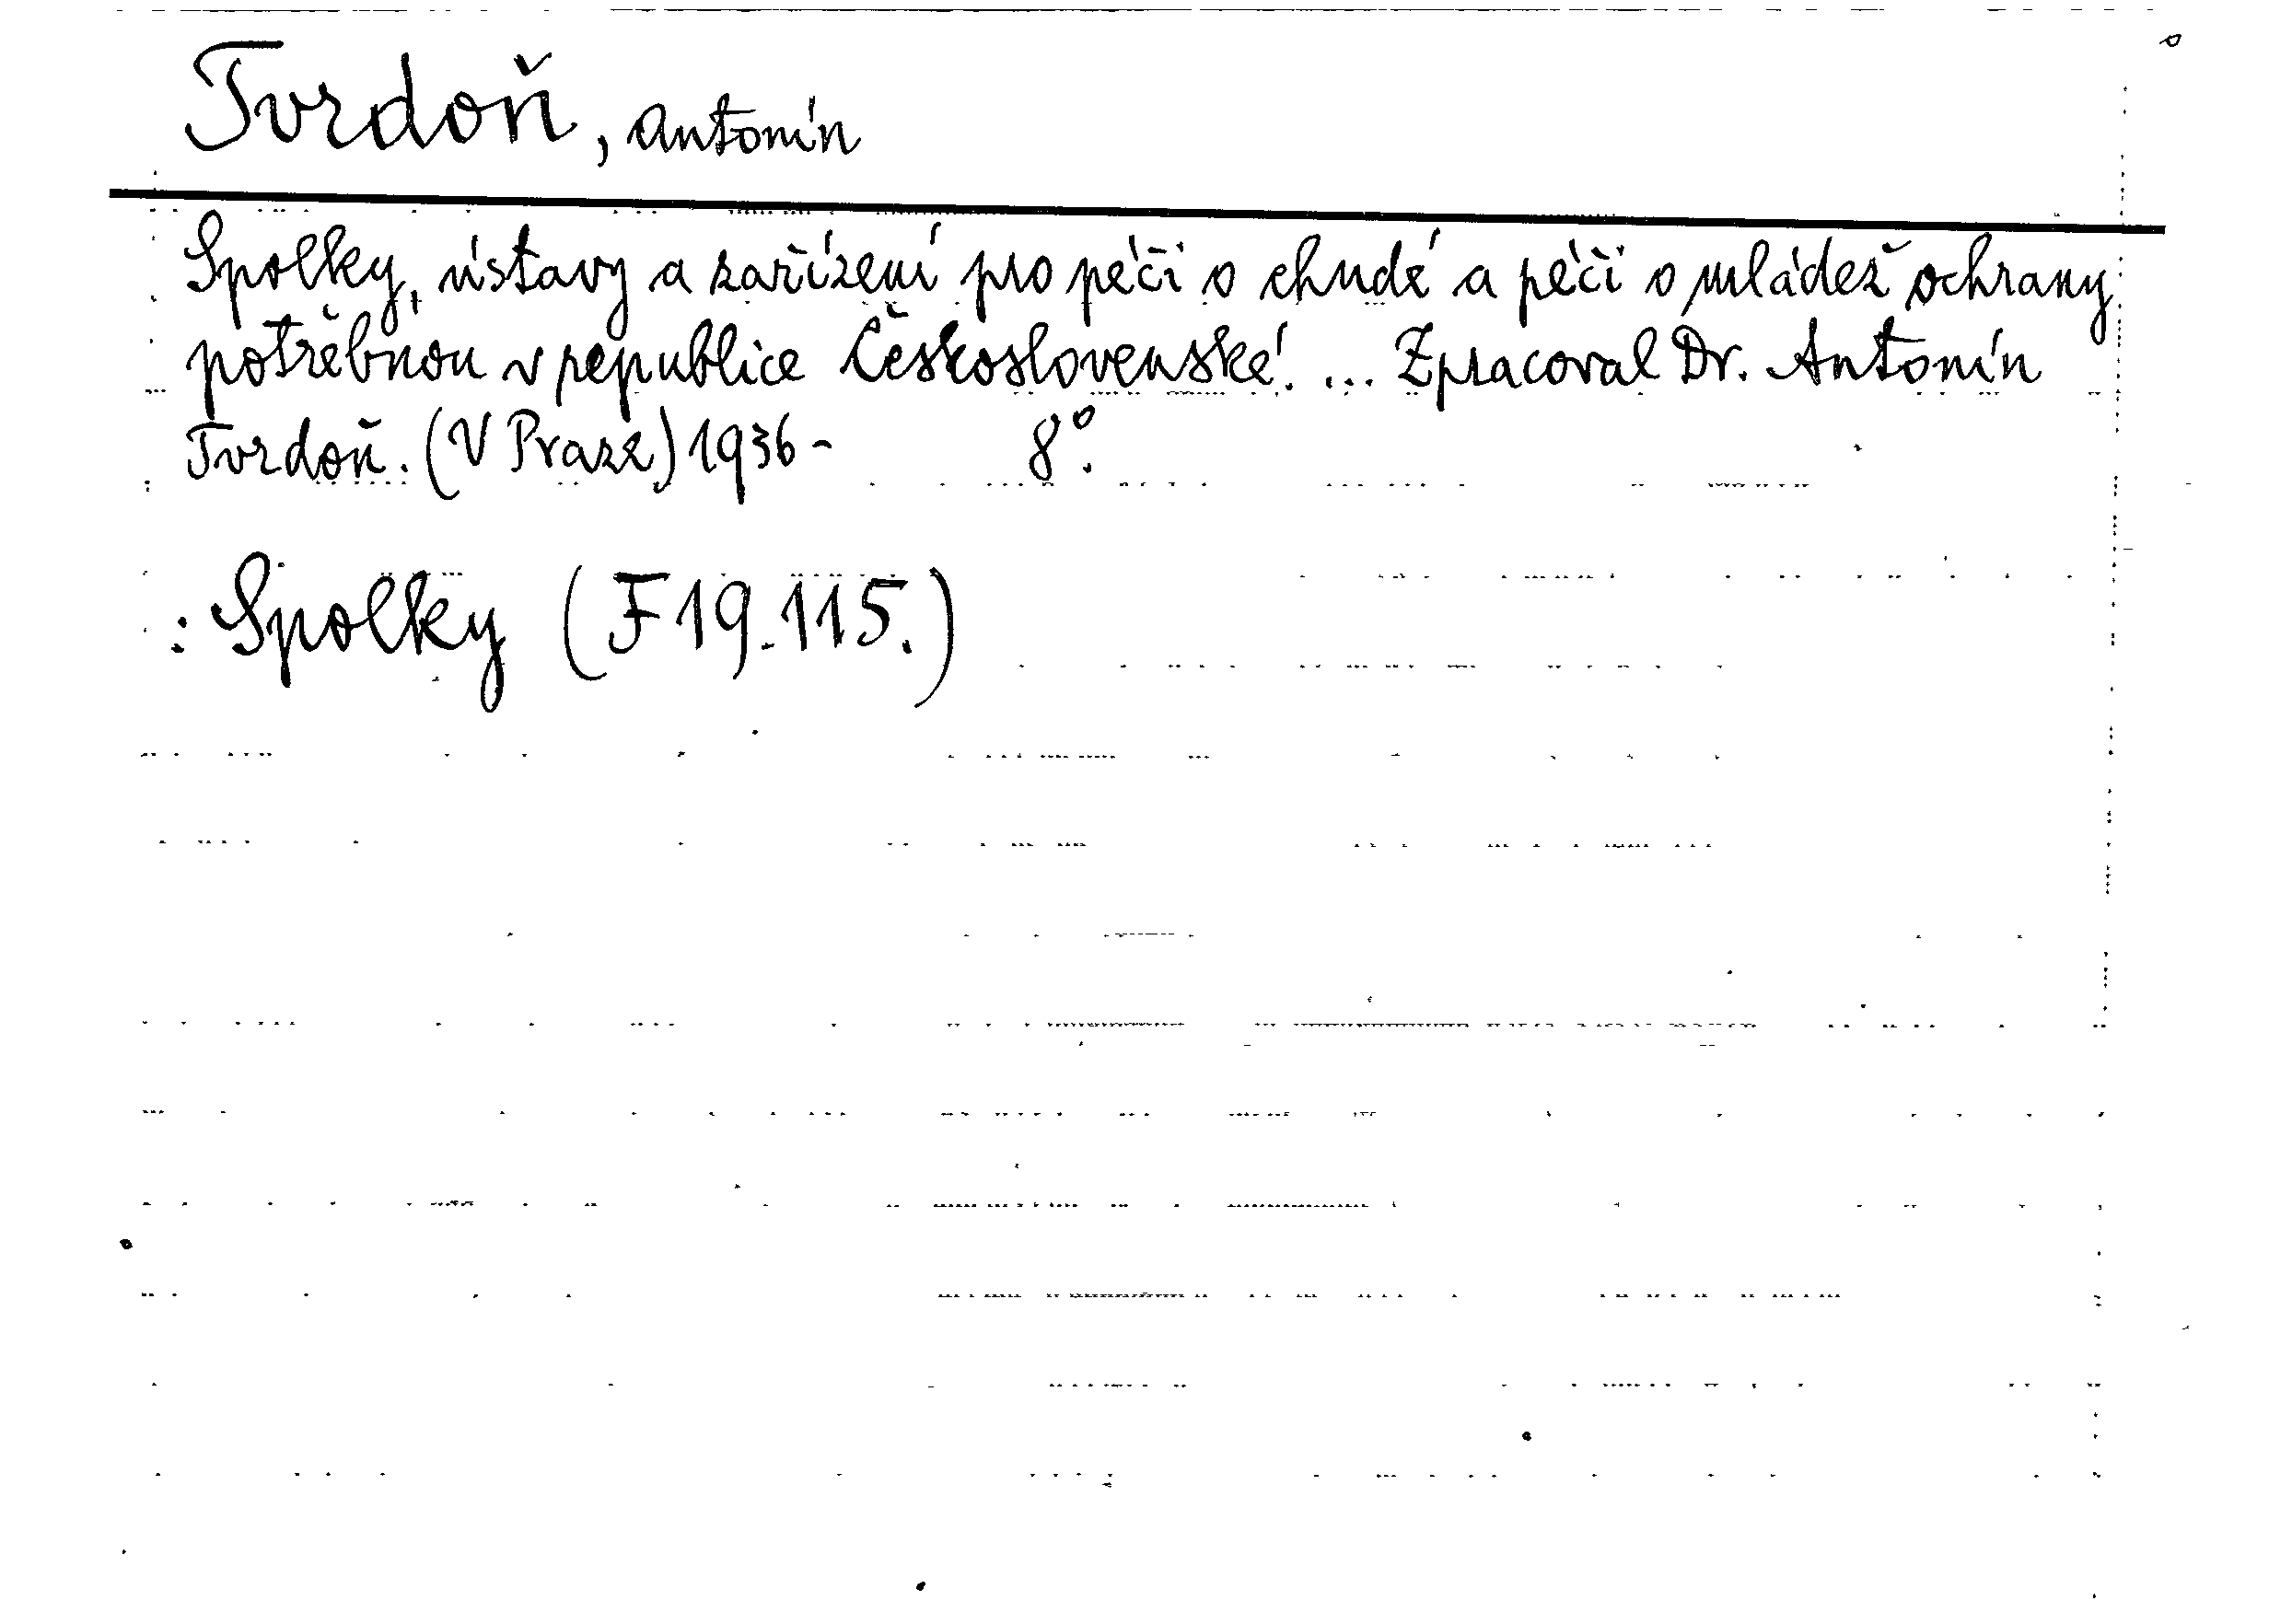 Tvrdoň, Antonín
Spolky, ústavy a zařízení pro péči o chudé a péči o mládež ochrany
potřebnou v republice Československé. ... Zpracoval Dr. Antonín
Tvrdoň. (V Praze) 1936- 8°.
: Spolky (F 19.115.)